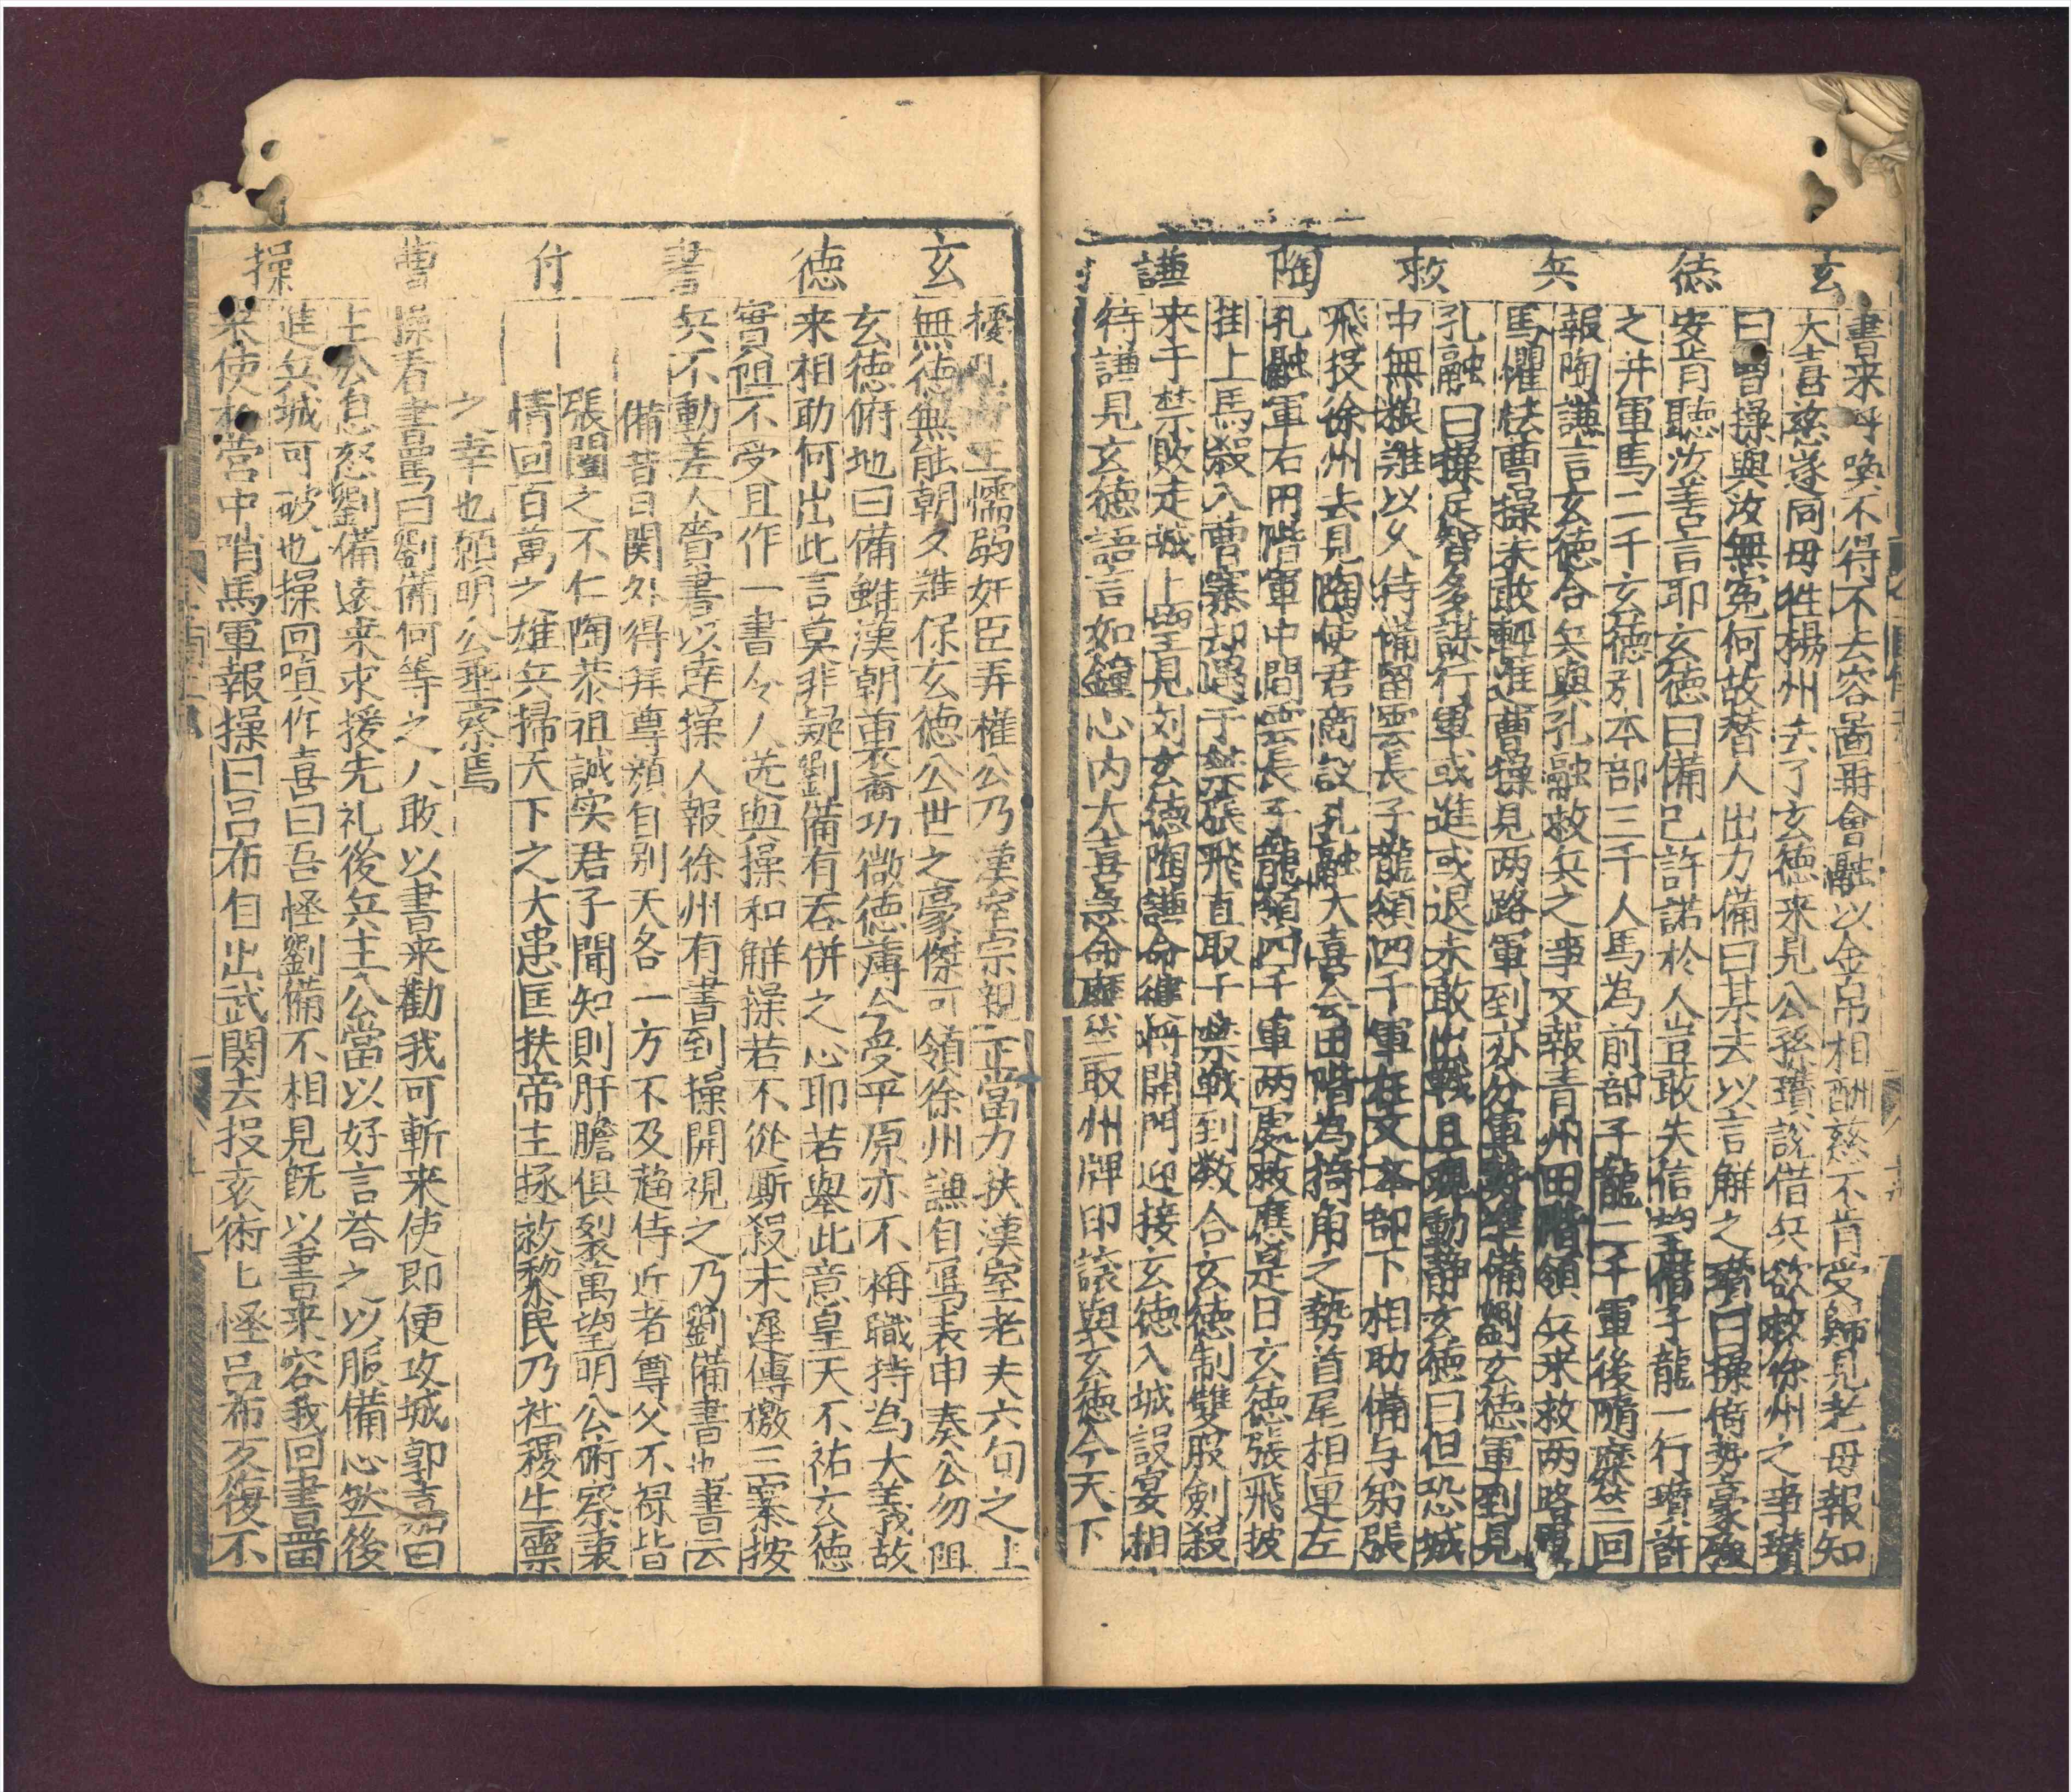 玄德兵救陶謙
書来呼喚不得不去容啚再會融以金帛相酬慈不肯受歸見老母報知
大喜慈遂同母往揚州去了玄德来見公孫瓚說借兵欲救徐州之事瓚
曰曹操與汝無冤何故替人出力備曰某去以言解之瓚曰操倚勢豪強
安肯聽汝善言耶玄德曰備已許諾於人豈敢失信望借子龍一行瓚許
之并軍馬二千玄德引本部三千人馬為前部子龍二千軍後隨糜竺回
報陶謙言玄德合兵與孔融救兵之事又報青州田階領兵来救两路軍
馬懼怯曹操未敢輕進曹操見两路軍到亦分軍勢準備劉玄德軍到見
孔融曰操足智多謀行軍或進或退未敢出戰且觀動静玄德曰但恐城
中無粮難以久待備留雲長子龍領四千軍在文本部下相助備与弟張
飛投徐州去見陶使君商議孔融大喜会田階為掎角之勢首尾相連左
孔融軍右田階軍中間雲長子龍領四千軍两處救應是日玄德張飛披
掛上馬殺入曹寨却遇于禁張飛直取于禁戰到数合玄德制雙股劍殺
来于禁敗走城上望見刘玄德陶謙命律将開門迎接玄德入城設宴相
待謙見玄德語言如鐘心内大喜急命糜竺取州牌印讓與玄德今天下
玄德書付曹操
擾 王懦弱奸臣弄權公乃漢室宗親正當力扶漢室老夫六旬之上
無德無能朝夕難保玄德公世之豪傑可領徐州謙自寫表申奏公勿阻
玄德俯地曰備雖漢朝裏裔功微德薄今受平原亦不稱職持為大義故
来相助何出此言莫非疑劉備有吞併之心耶若舉此意皇天不祐玄德
實阻不受且作一書令人送與操和解操若不從厮殺未遲傳檄三寨按
兵不動差人賫書以達操人報徐州有書到操開視之乃劉備書也書云
備昔日関外得拜尊顔自别天各一方不及趋侍近者尊父不禄皆
張闓之不仁陶恭祖誠实君子聞知則肝膽俱裂萬望明公俯察衷
情回百萬之雄兵掃天下之大患匡扶帝主拯救黎民乃社稷生靈
之幸也願明公垂察焉
操看書罵曰劉備何等之人敢以書来勸我可斬来使即便攻城郭嘉曰
主公息怒劉備遠来求援先礼後兵主公當以好言荅之以服備心然後
進兵城可破也操回嗔作喜曰吾怪劉備不相見既以書来容我回書畱
来使於營中哨馬軍報操曰吕布自出武関去投袁術匕怪吕布反復不